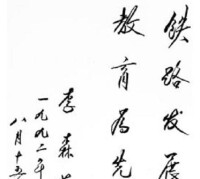 铁路发展
教育为先
李森茂
一九九二年
八月十五